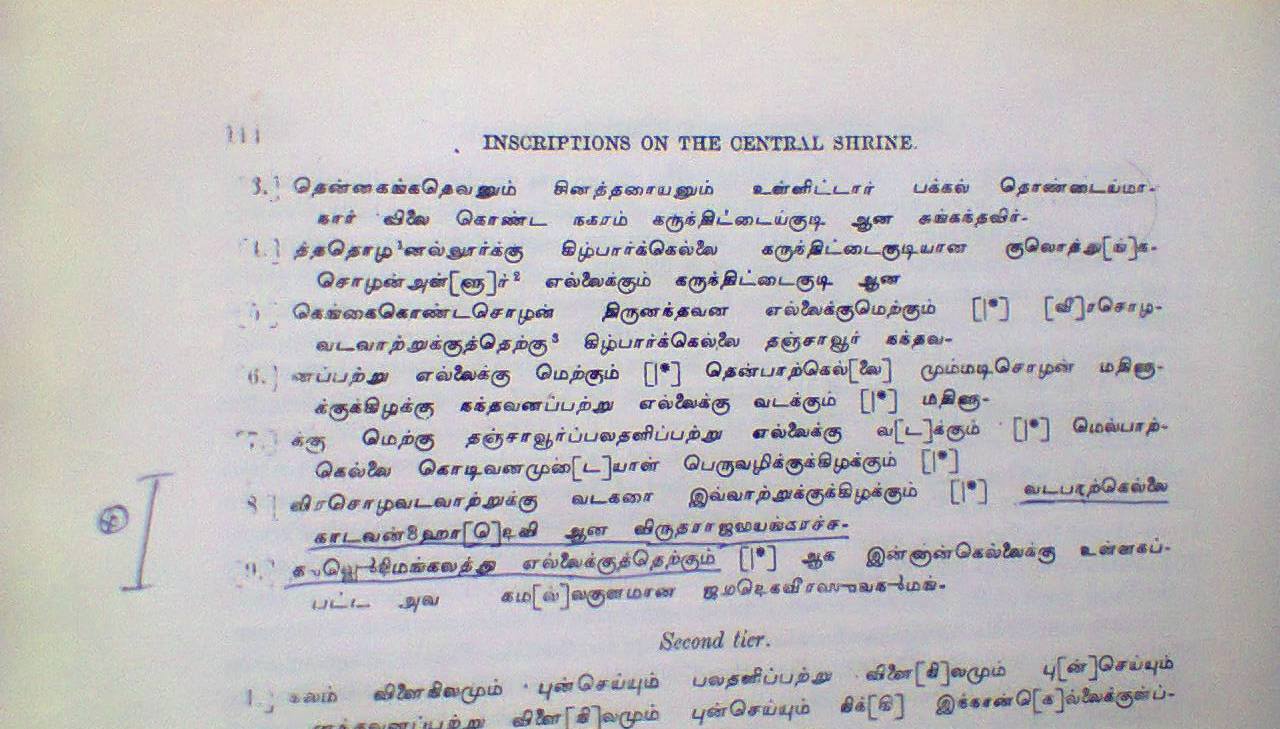 INSCRIPTIONS ON THE CENTRAL SHRINE.
3.] தென்கைங்கதெவனும் சினத்தராயனும் உள்ளிட்டார் பக்கல் தொண்டைய்மா-
நார் விலை கொண்ட நகரம் கருந்திட்டைய்குடி ஆன சுங்கந்தவிர்-
4.] த்ததொழ¹னல்லூர்க்கு கிழ்பார்க்கெல்லை கருந்திட்டைகுடியான குலொத்து[ங்]க-
சொழன் அள்[ளூ]ர்² எல்லைக்கும் கருந்திட்டைகுடி ஆன
5.] கெங்கைகொண்டசொழன் திருனந்தவன எல்லைக்குமெற்கும் [|*] [வீ]ரசொழ-
வடவாற்றுக்குத்தெற்கு³ கிழ்பார்க்கெல்லை தஞ்சாவூர் நந்தவ-
6.] னப்பற்று எல்லைக்கு மெற்கும் [|*] தென்பாற்கெல்[லை] மும்மடிசொழன் மதிளு-
க்குக்கிழக்கு நந்தவனப்பற்று எல்லைக்கு வடக்கும் [|*] மதிளு-
7.] க்கு மெற்கு தஞ்சாவூர்ப்பலதளிப்பற்று எல்லைக்கு வ[ட]க்கும் [|*] மெல்பாற்-
கெல்லை கொடிவனமுடை[ட]யாள் பெருவழிக்குக்கிழக்கும் [|*]
8.] விரசொழவடவாற்றுக்கு வடகரை இவ்வாற்றுக்குக்கிழக்கும் [|*] வடபாற்கெல்லை
காடவன் ஆன
9.] எல்லைக்குத்தெற்கும் [|*] ஆக இன்னான்கெல்லைக்கு உள்ளகப்-
பட்ட
Second tier.
1.] விளைநிலமும் புன்செய்யும் பலதளிப்பற்று விளை[நி]லமும் பு[ன்]செய்யும்
விளை[நி]லமும் புன்செய்யும்